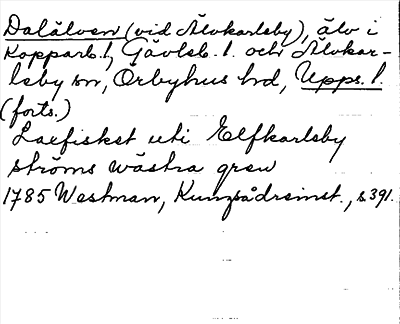 Dalälven (vid Älvkarleby), älv i
Kopparb. l., Gävleb. l. och Älvkar-
leby sn, Örbyhus hd, Upps. l.
(forts.)
Laxfisket uti Elfkarleby
ströms wästra gren
1785 Westman, Kungsådreinst., s 391.